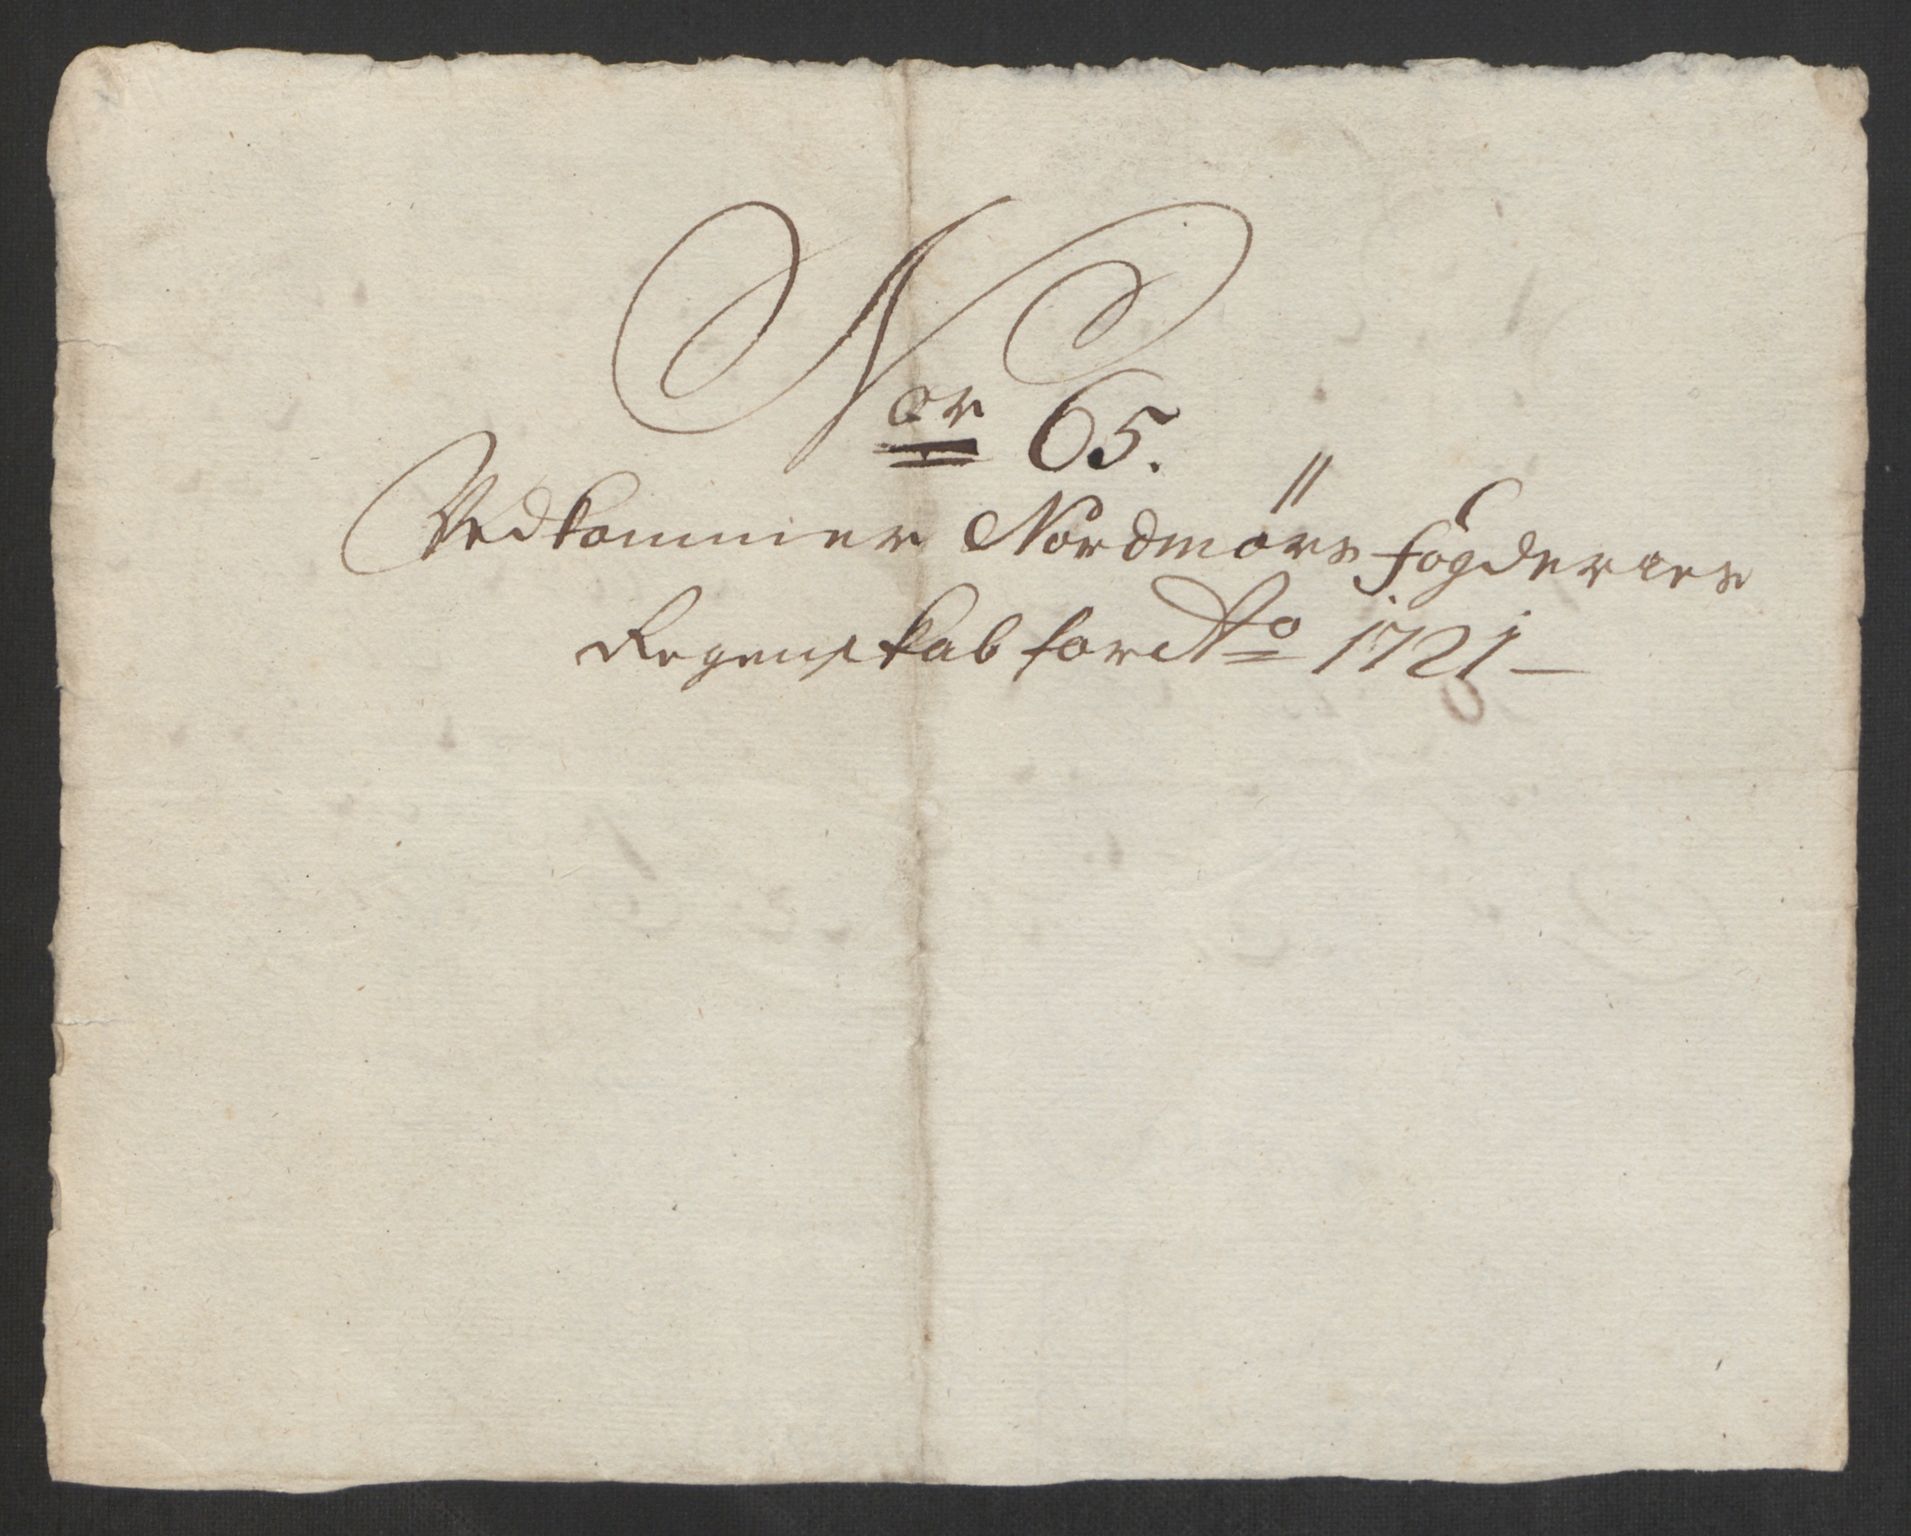 Nor 65.
Vedkommer Nordmørs fogderies
Regenskab for Ao 1721